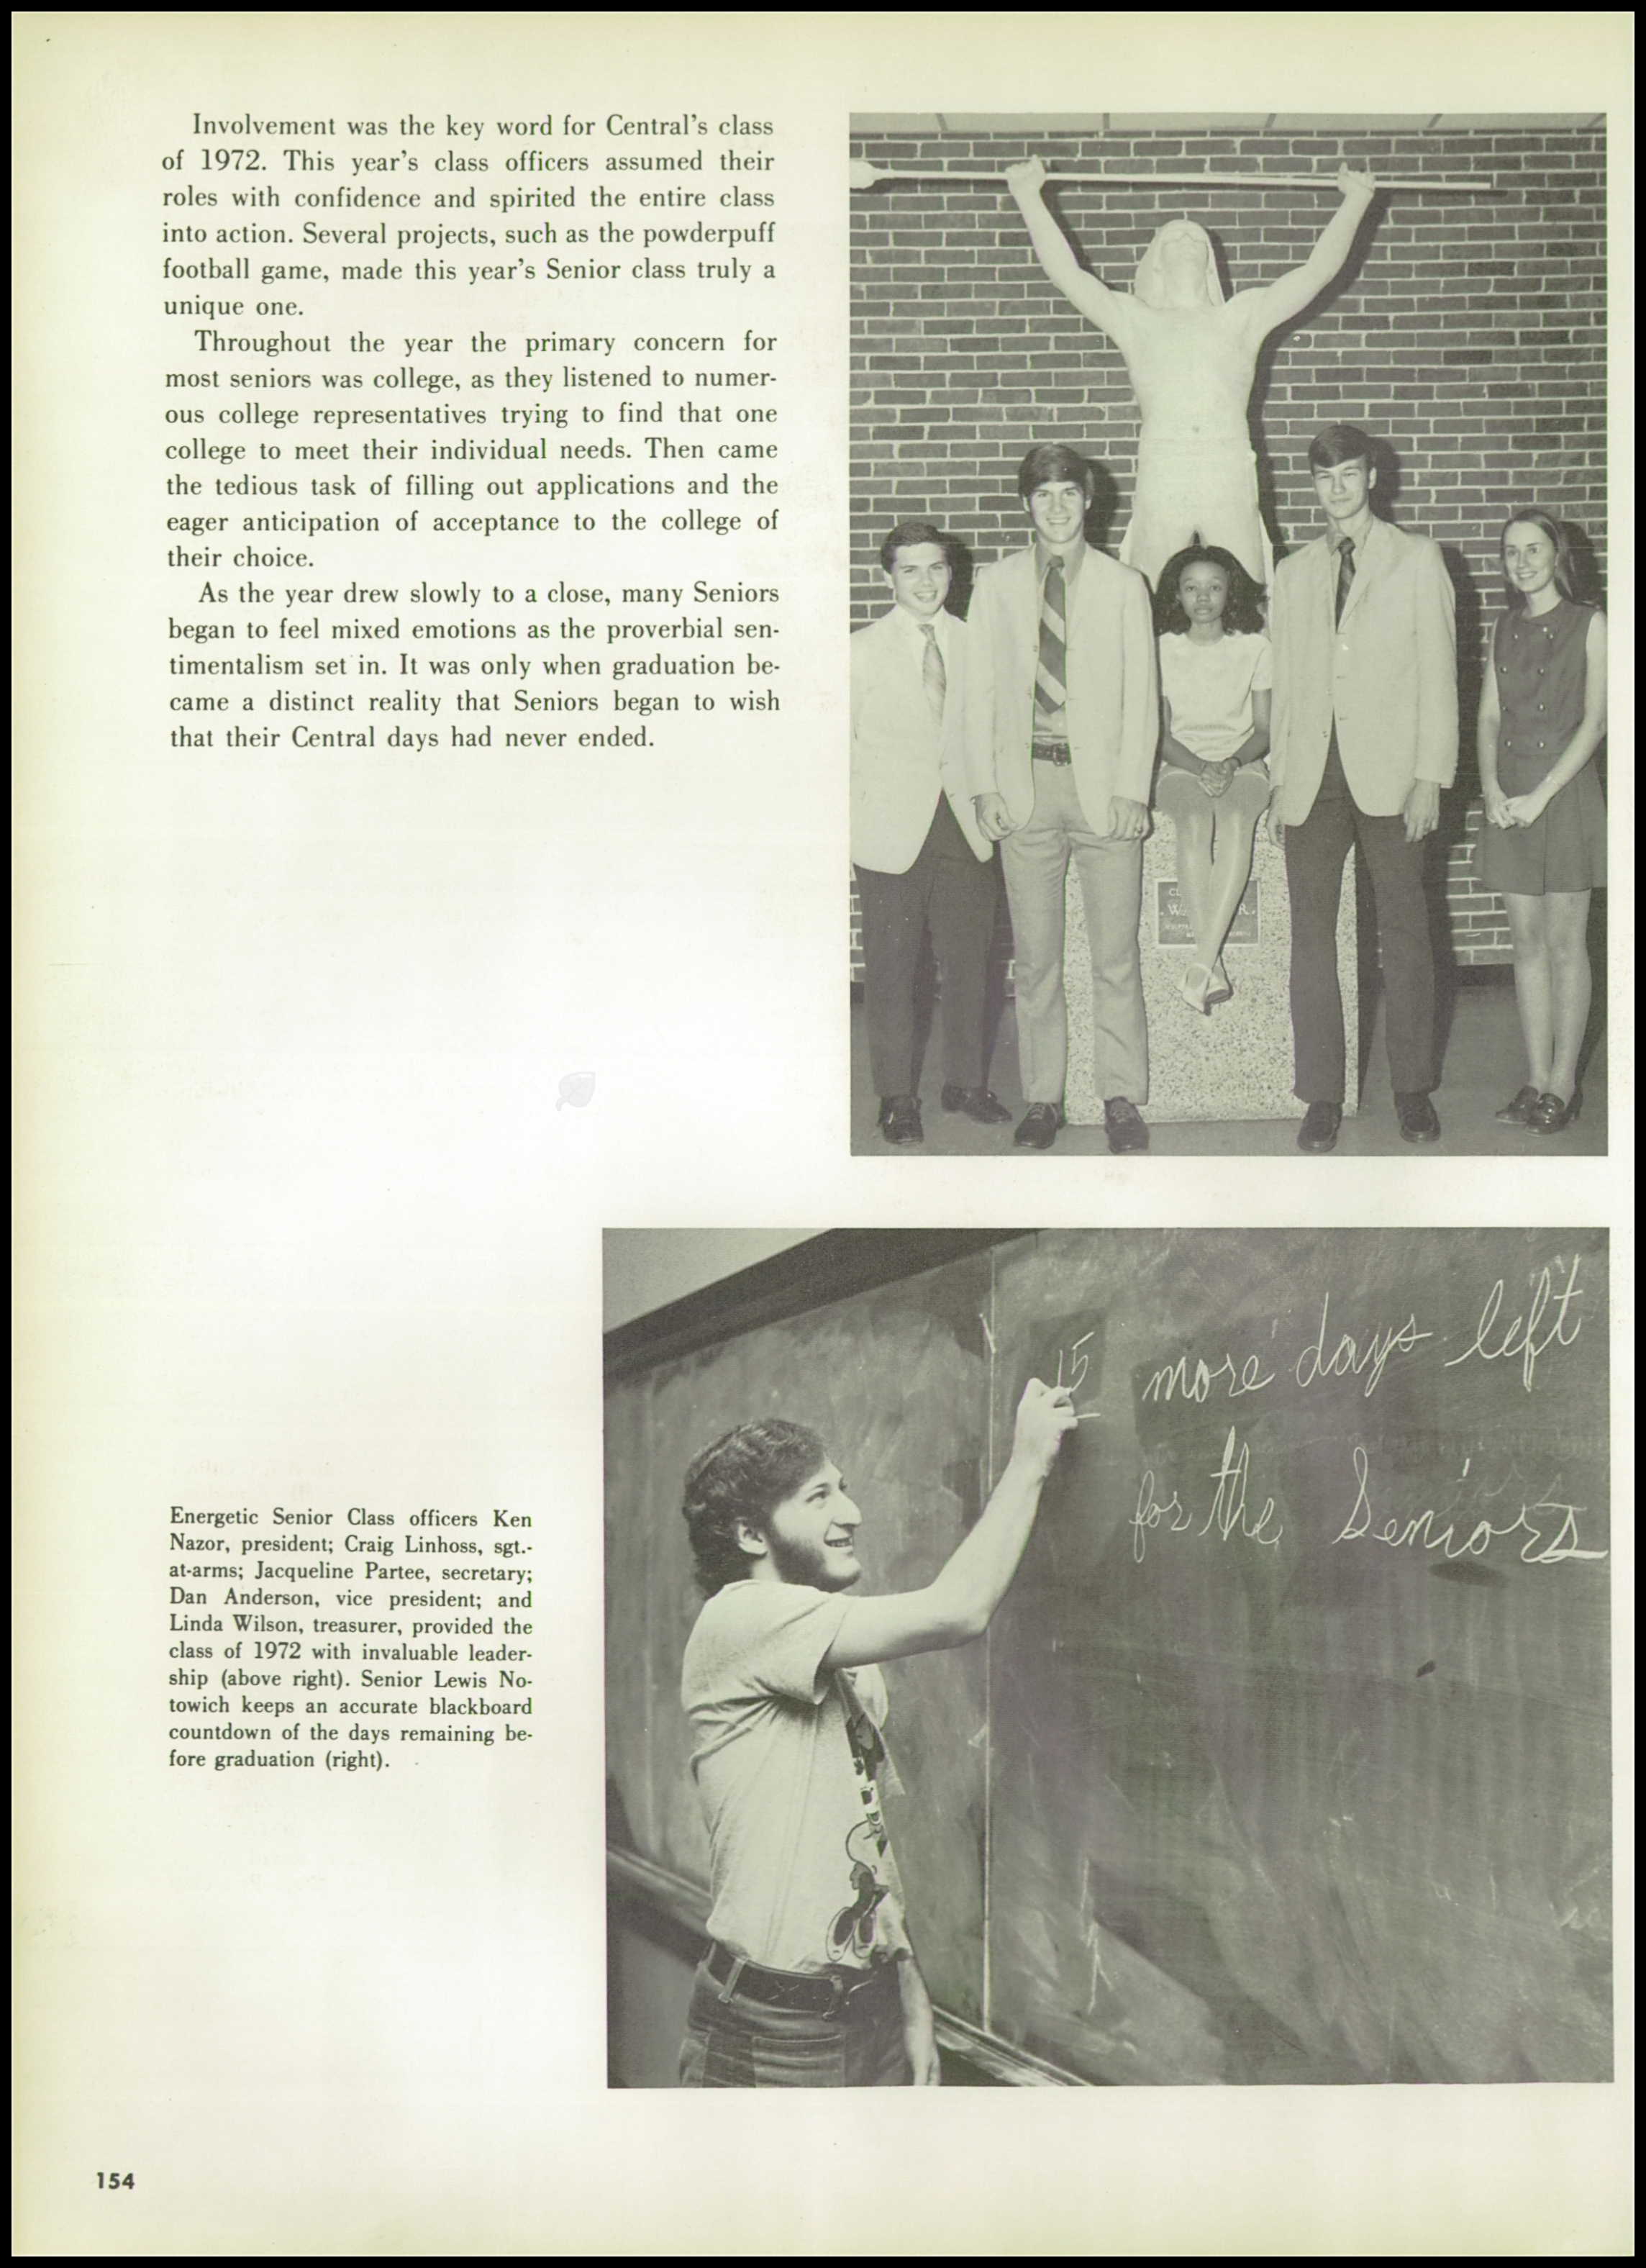 Involvement was the key word for Central's class
of 1972. This year's class officers assumed their
roles with confidence and spirited the entire class
into action. Several projects, such as the powderpuff
football game, made this year's Senior class truly a
unique one.
Throughout the year the primary concern for
most seniors was college, as they listened to numer-
ous college representatives trying to find that one
college to meet their individual needs. Then came
the tedious task of filling out applications and the
eager anticipation of acceptance to the college of
their choice.
As the year drew slowly to a close, many Seniors
began to feel mixed emotions as the proverbial sen-
timentalism set in. It was only when graduation be-
came a distinct reality that Seniors began to wish
that their Central days had never ended.
15 more days left
for the Seniors
Energetic Senior Class officers Ken
Nazor, president; Craig Linhoss, sgt.-
at-arms; Jacqueline Partee, secretary;
Dan Anderson, vice president; and
Linda Wilson, treasurer, provided the
class of 1972 with invaluable leader-
ship (above right). Senior Lewis No-
towich keeps an accurate blackboard
countdown of the days remaining be-
fore graduation (right).
154